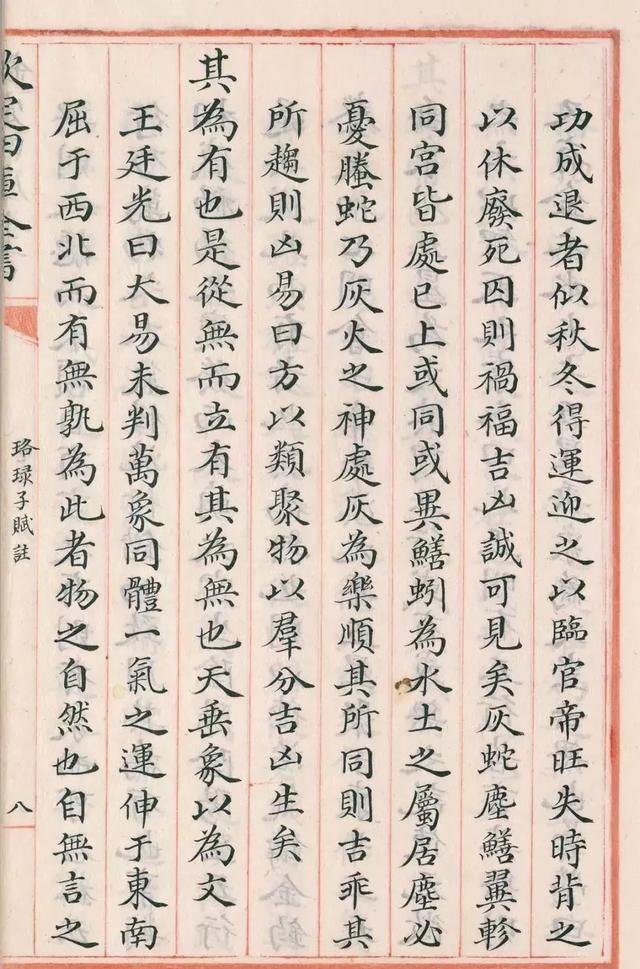 功成退者似秋冬得運迎之以臨官帝旺失時背之
以休廢死囚則禍福吉凶誠可見矣灰蛇塵鱔翼軫
同宫皆處巳上或同或異鱔蚓為水土之屬居塵必
憂螣蛇乃灰火之神處灰為樂順其所同則吉乖其
所趨則凶易曰方以類聚物以羣分吉凶生矣
其為有也是從無而立有其為無也天垂象以為文
王廷光曰大易未判萬象同體一氣之運伸于東南
屈于西北而有無孰為此者物之自然也自無言之
欽定四庫全書
珞琭子賦註
八